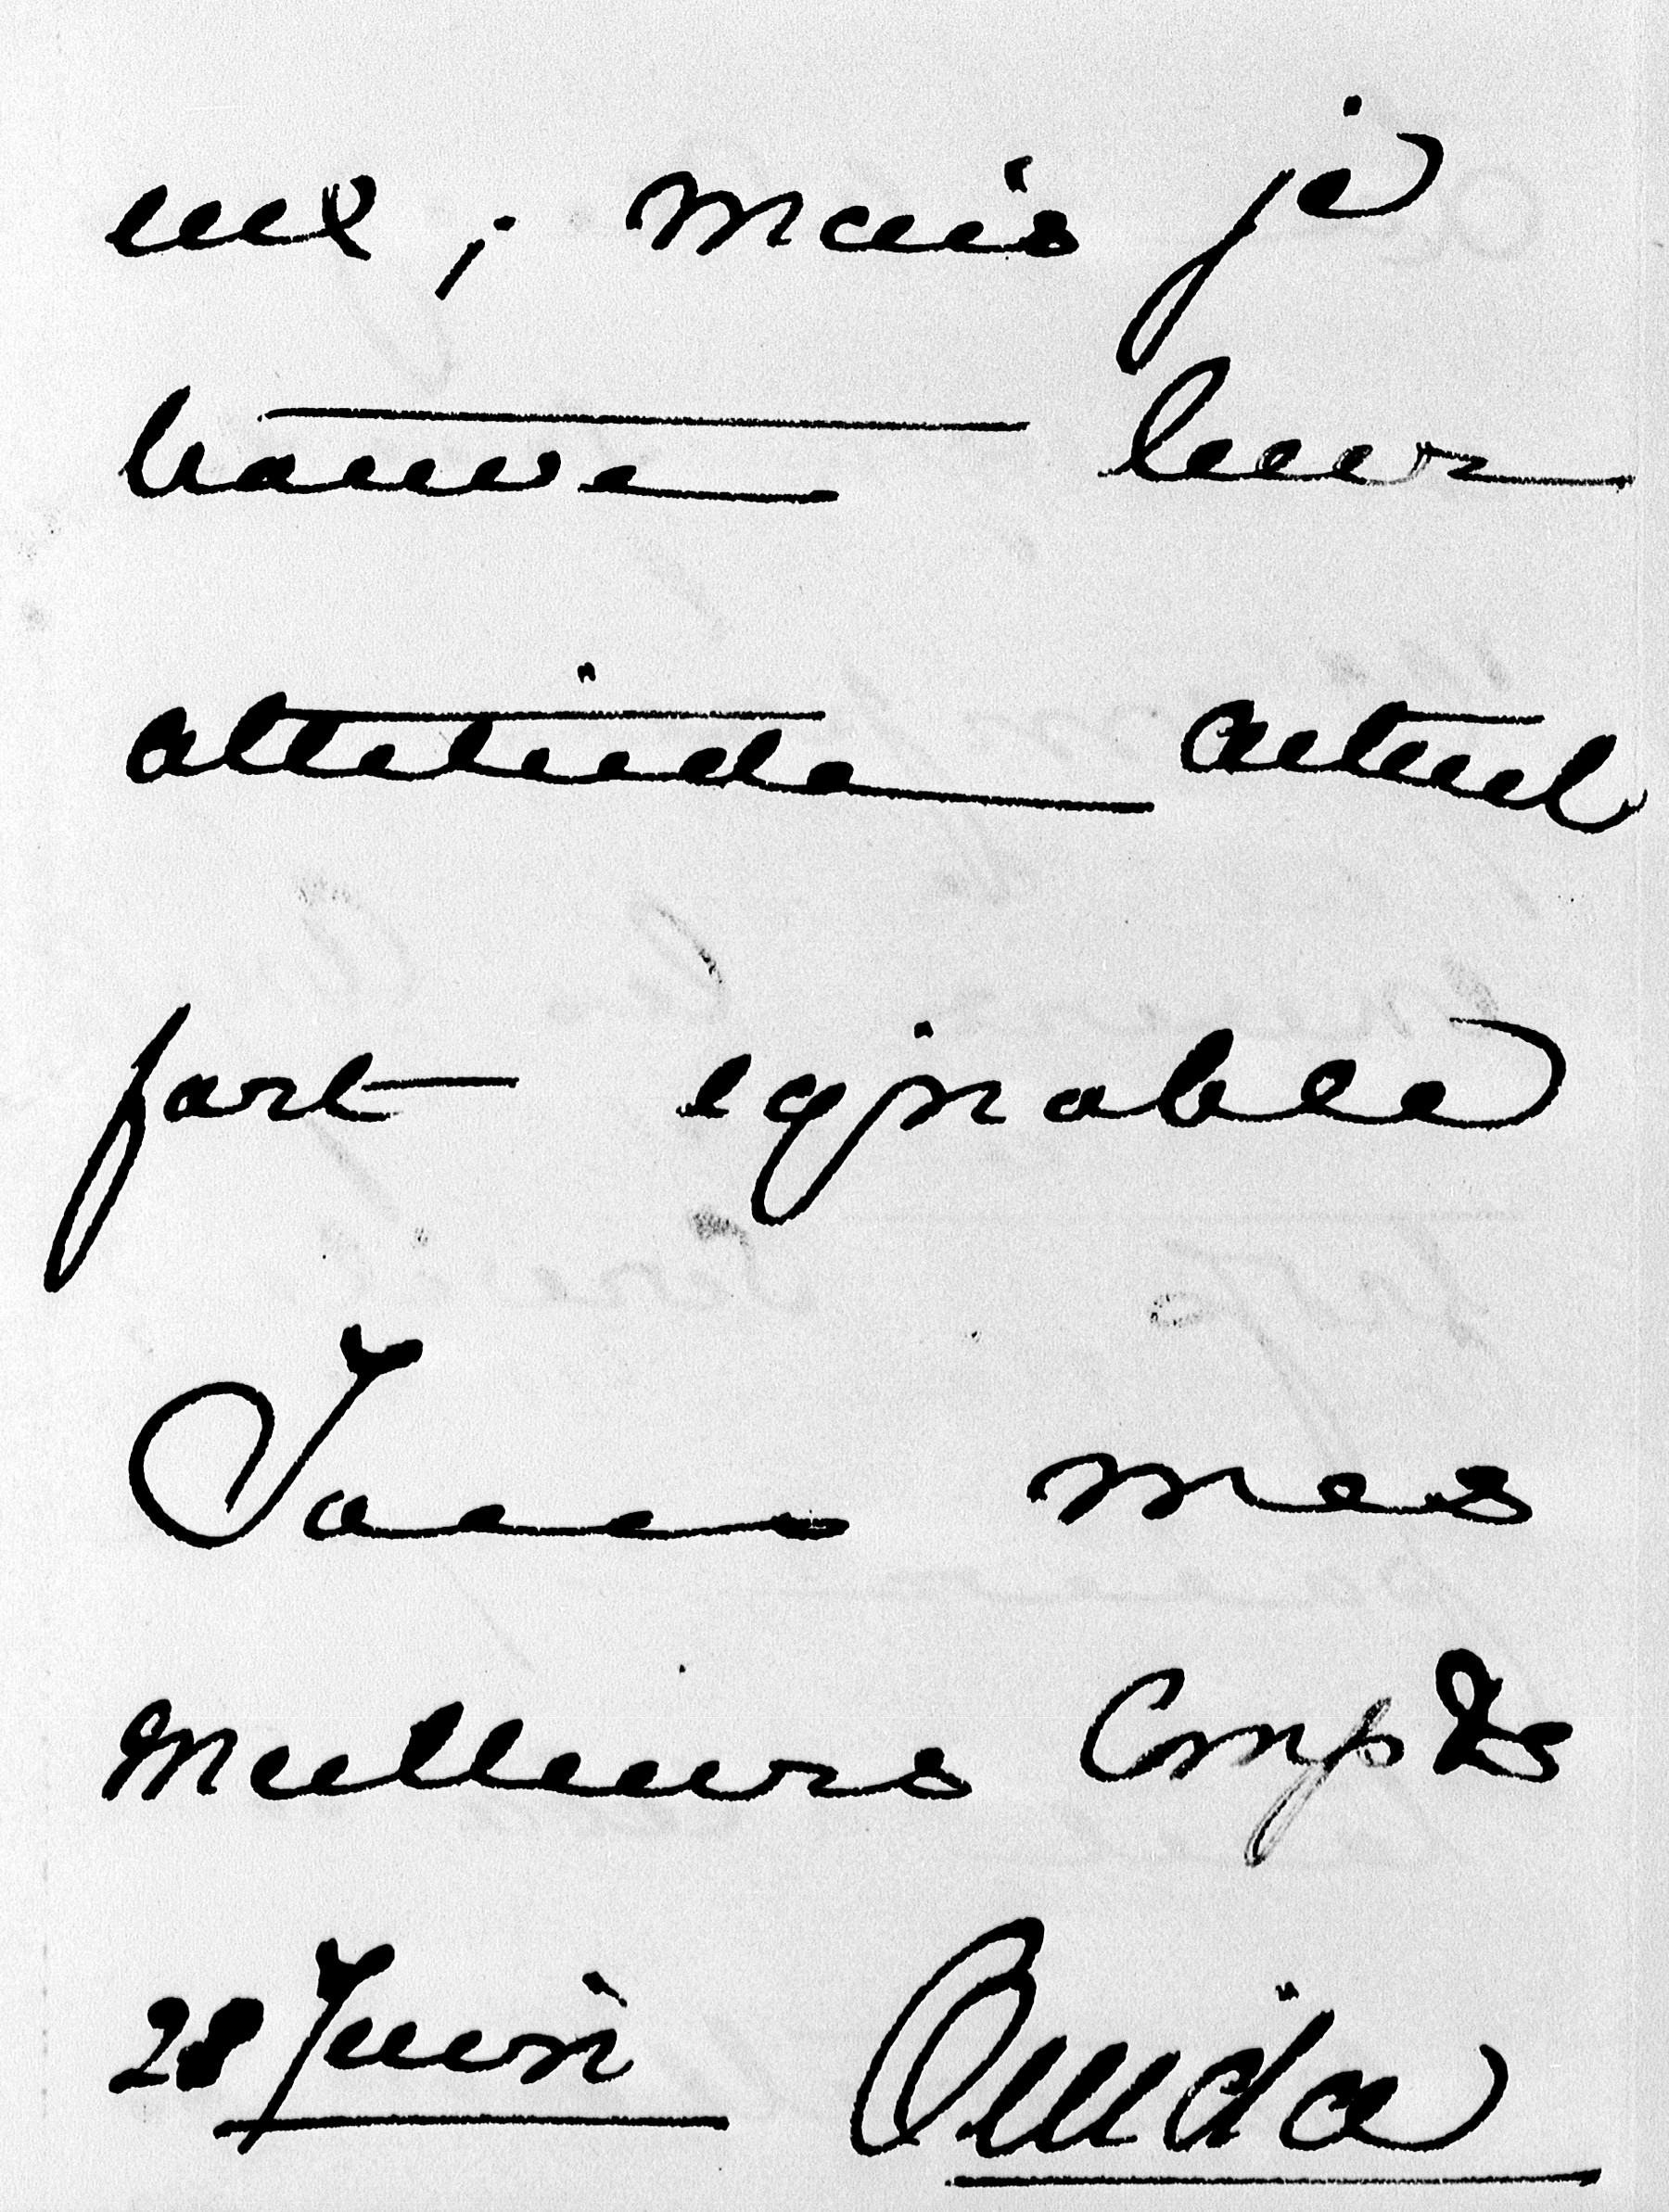 eux ; mais je
trouve leur
attitude actuel
fort ignoble
Tous mes
Meilleurs Compts
28 Juin Ouida